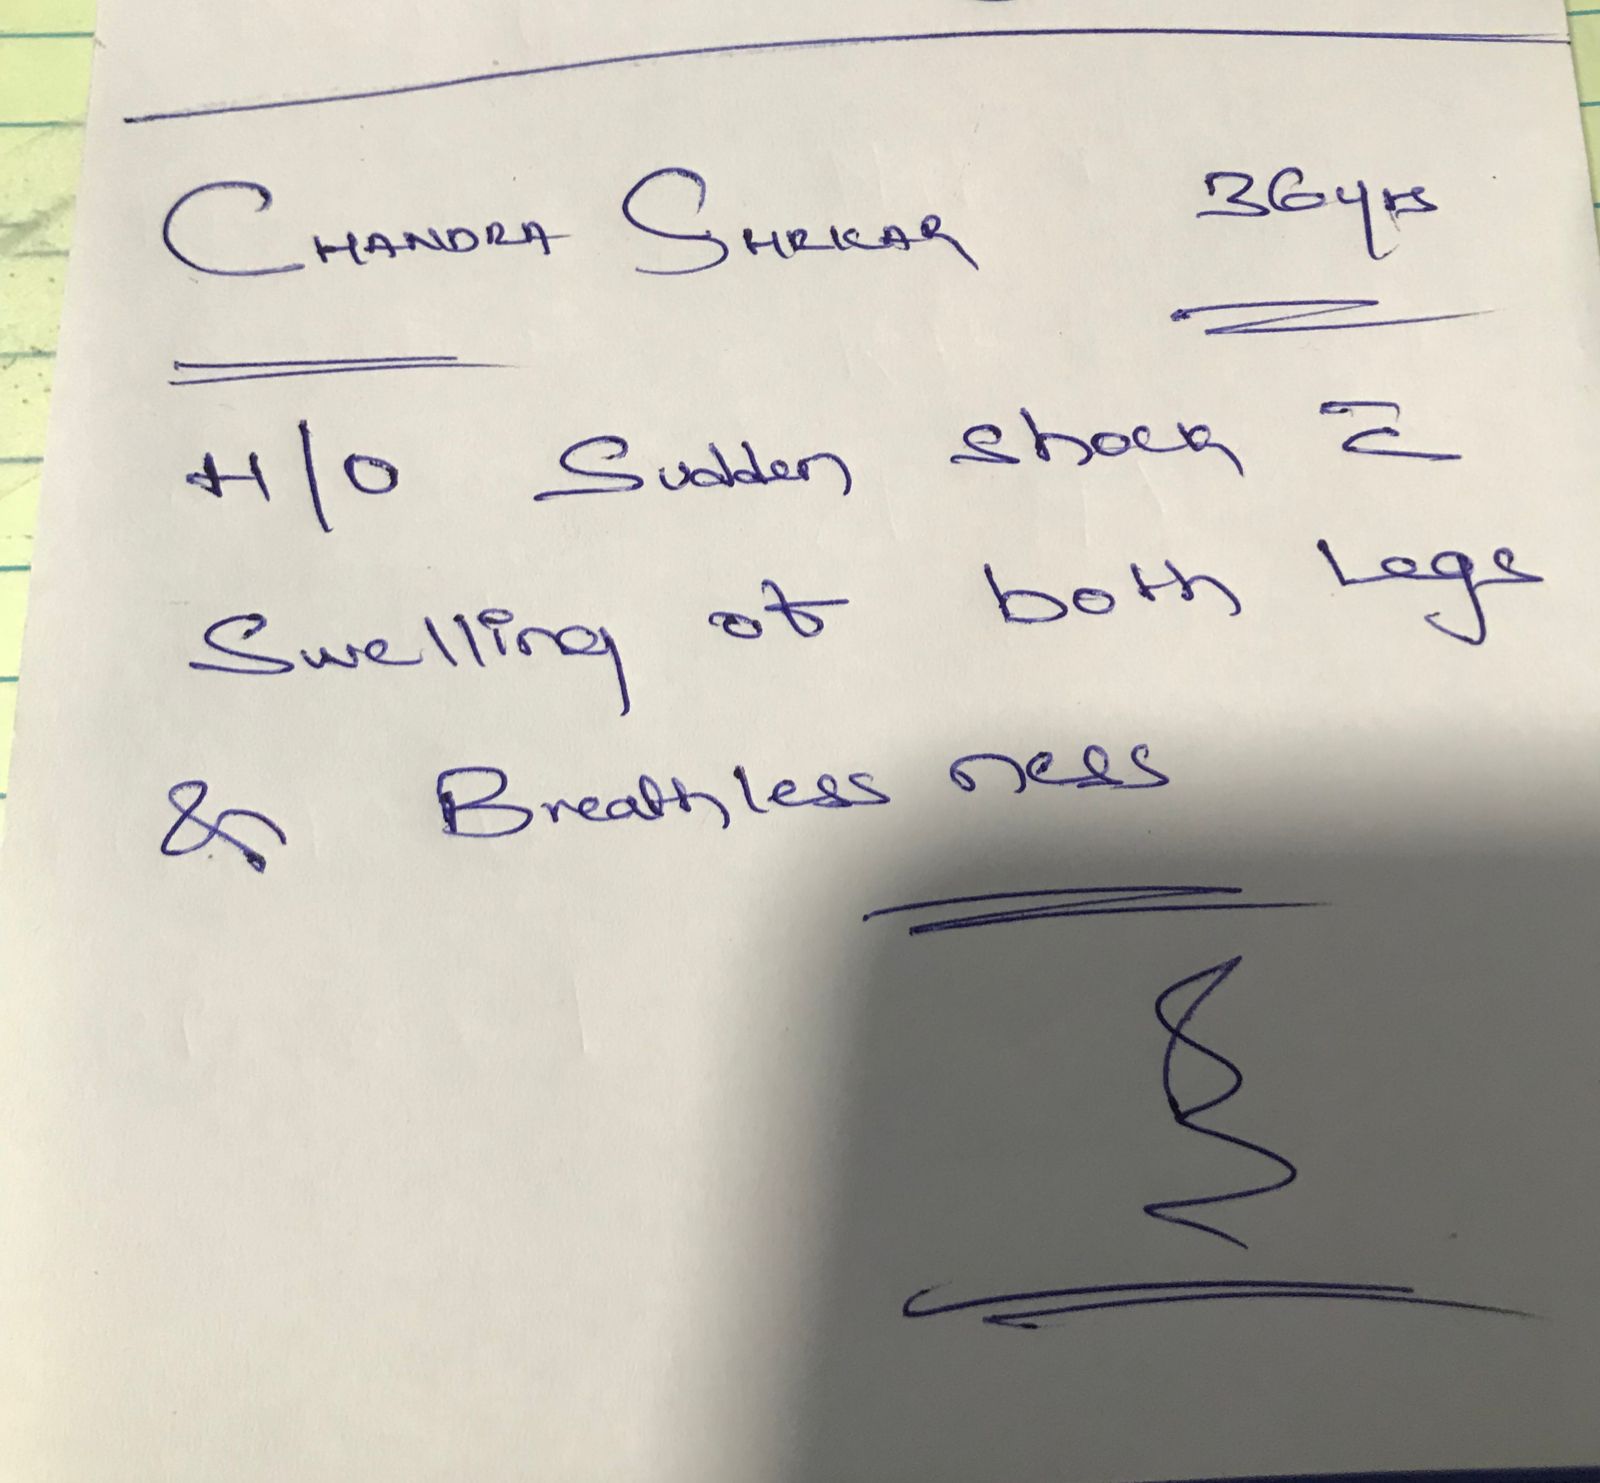 CHANDRA SHEKAR 36yrs
H/O Sudden shock c̄
Swelling of both Legs
& Breathlessness